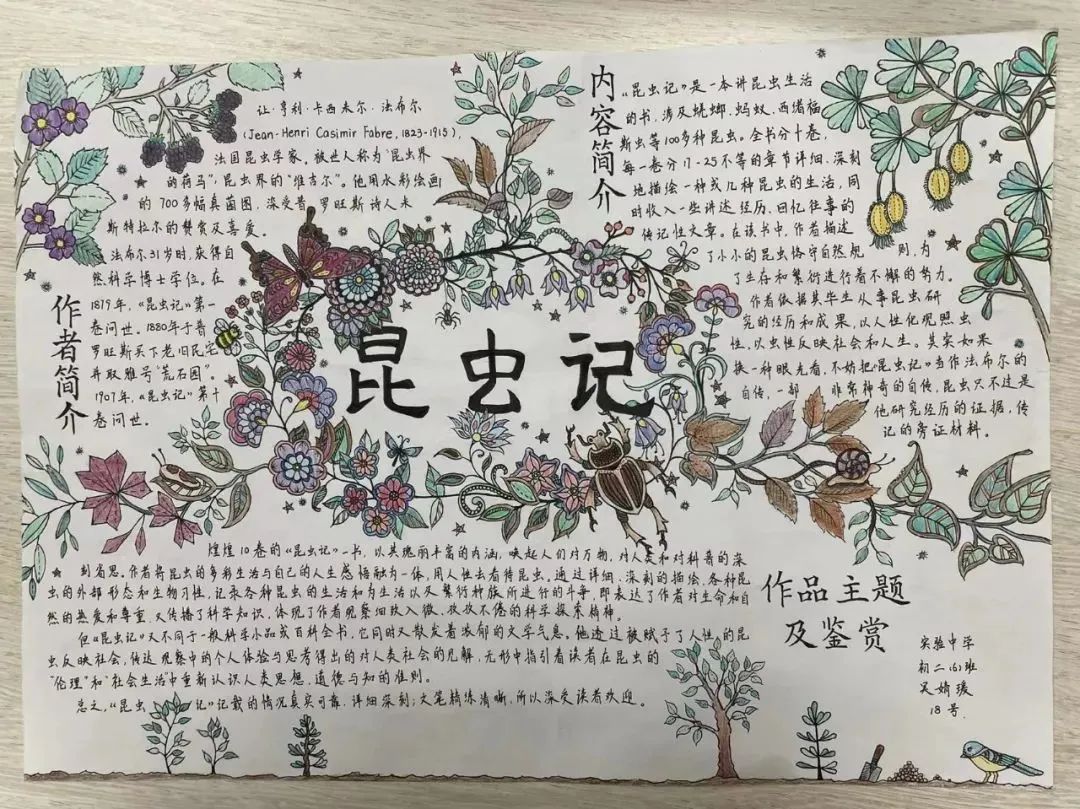 昆虫记
作者简介
让·亨利·卡西米尔·法布尔
(Jean-Henri Casimir Fabre, 1823-1915),
法国昆虫学家。被世人称为"昆虫界
的荷马",昆虫界的"维吉尔"。他用水彩绘画
的700多幅真菌图,深受普罗旺斯诗人米
斯特拉尔的赞赏及喜爱。
法布尔31岁时,获得自
然科学博士学位。在
1879年,《昆虫记》第一
卷问世。1880年于普
罗旺斯买下老旧民宅
并取雅号"荒石园"。
1907年,《昆虫记》第十
卷问世。
内容简介
《昆虫记》是一本讲昆虫生活
的书,涉及蜣螂、蚂蚁、西绪福
斯虫等100多种昆虫。全书分十卷,
每一卷分17-25不等的章节详细、深刻
地描绘一种或几种昆虫的生活,同
时收入一些讲述经历、回忆往事的
传记性文章。在该书中,作者描述
了小小的昆虫恪守自然规则,为
了生存和繁衍进行着不懈的努力。
作者依据其毕生从事昆虫研
究的经历和成果,以人性化观照虫
性,以虫性反映社会和人生。其实如果
换一种眼光看,不妨把《昆虫记》当作法布尔的
自传,一部非常神奇的自传,昆虫只不过是
他研究经历的证据,传
记的旁证材料。
煌煌10卷的《昆虫记》一书,以其瑰丽丰富的内涵,唤起人们对万物,对人类和对科普的深
刻省思。作者将昆虫的多彩生活与自己的人生感悟融为一体,用人性去看待昆虫。通过详细、深刻的描绘,各种昆
虫的外部形态和生物习性,记录各种昆虫的生活和为生活以及繁衍种族所进行的斗争,即表达了作者对生命和自
然的热爱和尊重,又传播了科学知识,体现了作者观察细致入微、孜孜不倦的科学探索精神。
但《昆虫记》又不同于一般科学小品或百科全书,它同时又散发着浓郁的文学气息。他透过被赋予了人性的昆
虫反映社会,传达观察中的个人体验与思考得出的对人类社会的见解,无形中指引着读者在昆虫的
"伦理"和"社会生活"中重新认识人类思想、道德与知的准则。
总之,《昆虫记》记载的情况真实可靠,详细深刻;文笔精练清晰,所以深受读者欢迎。
作品主题
及鉴赏
实验中学
初二(6)班
吴婧瑗
18号